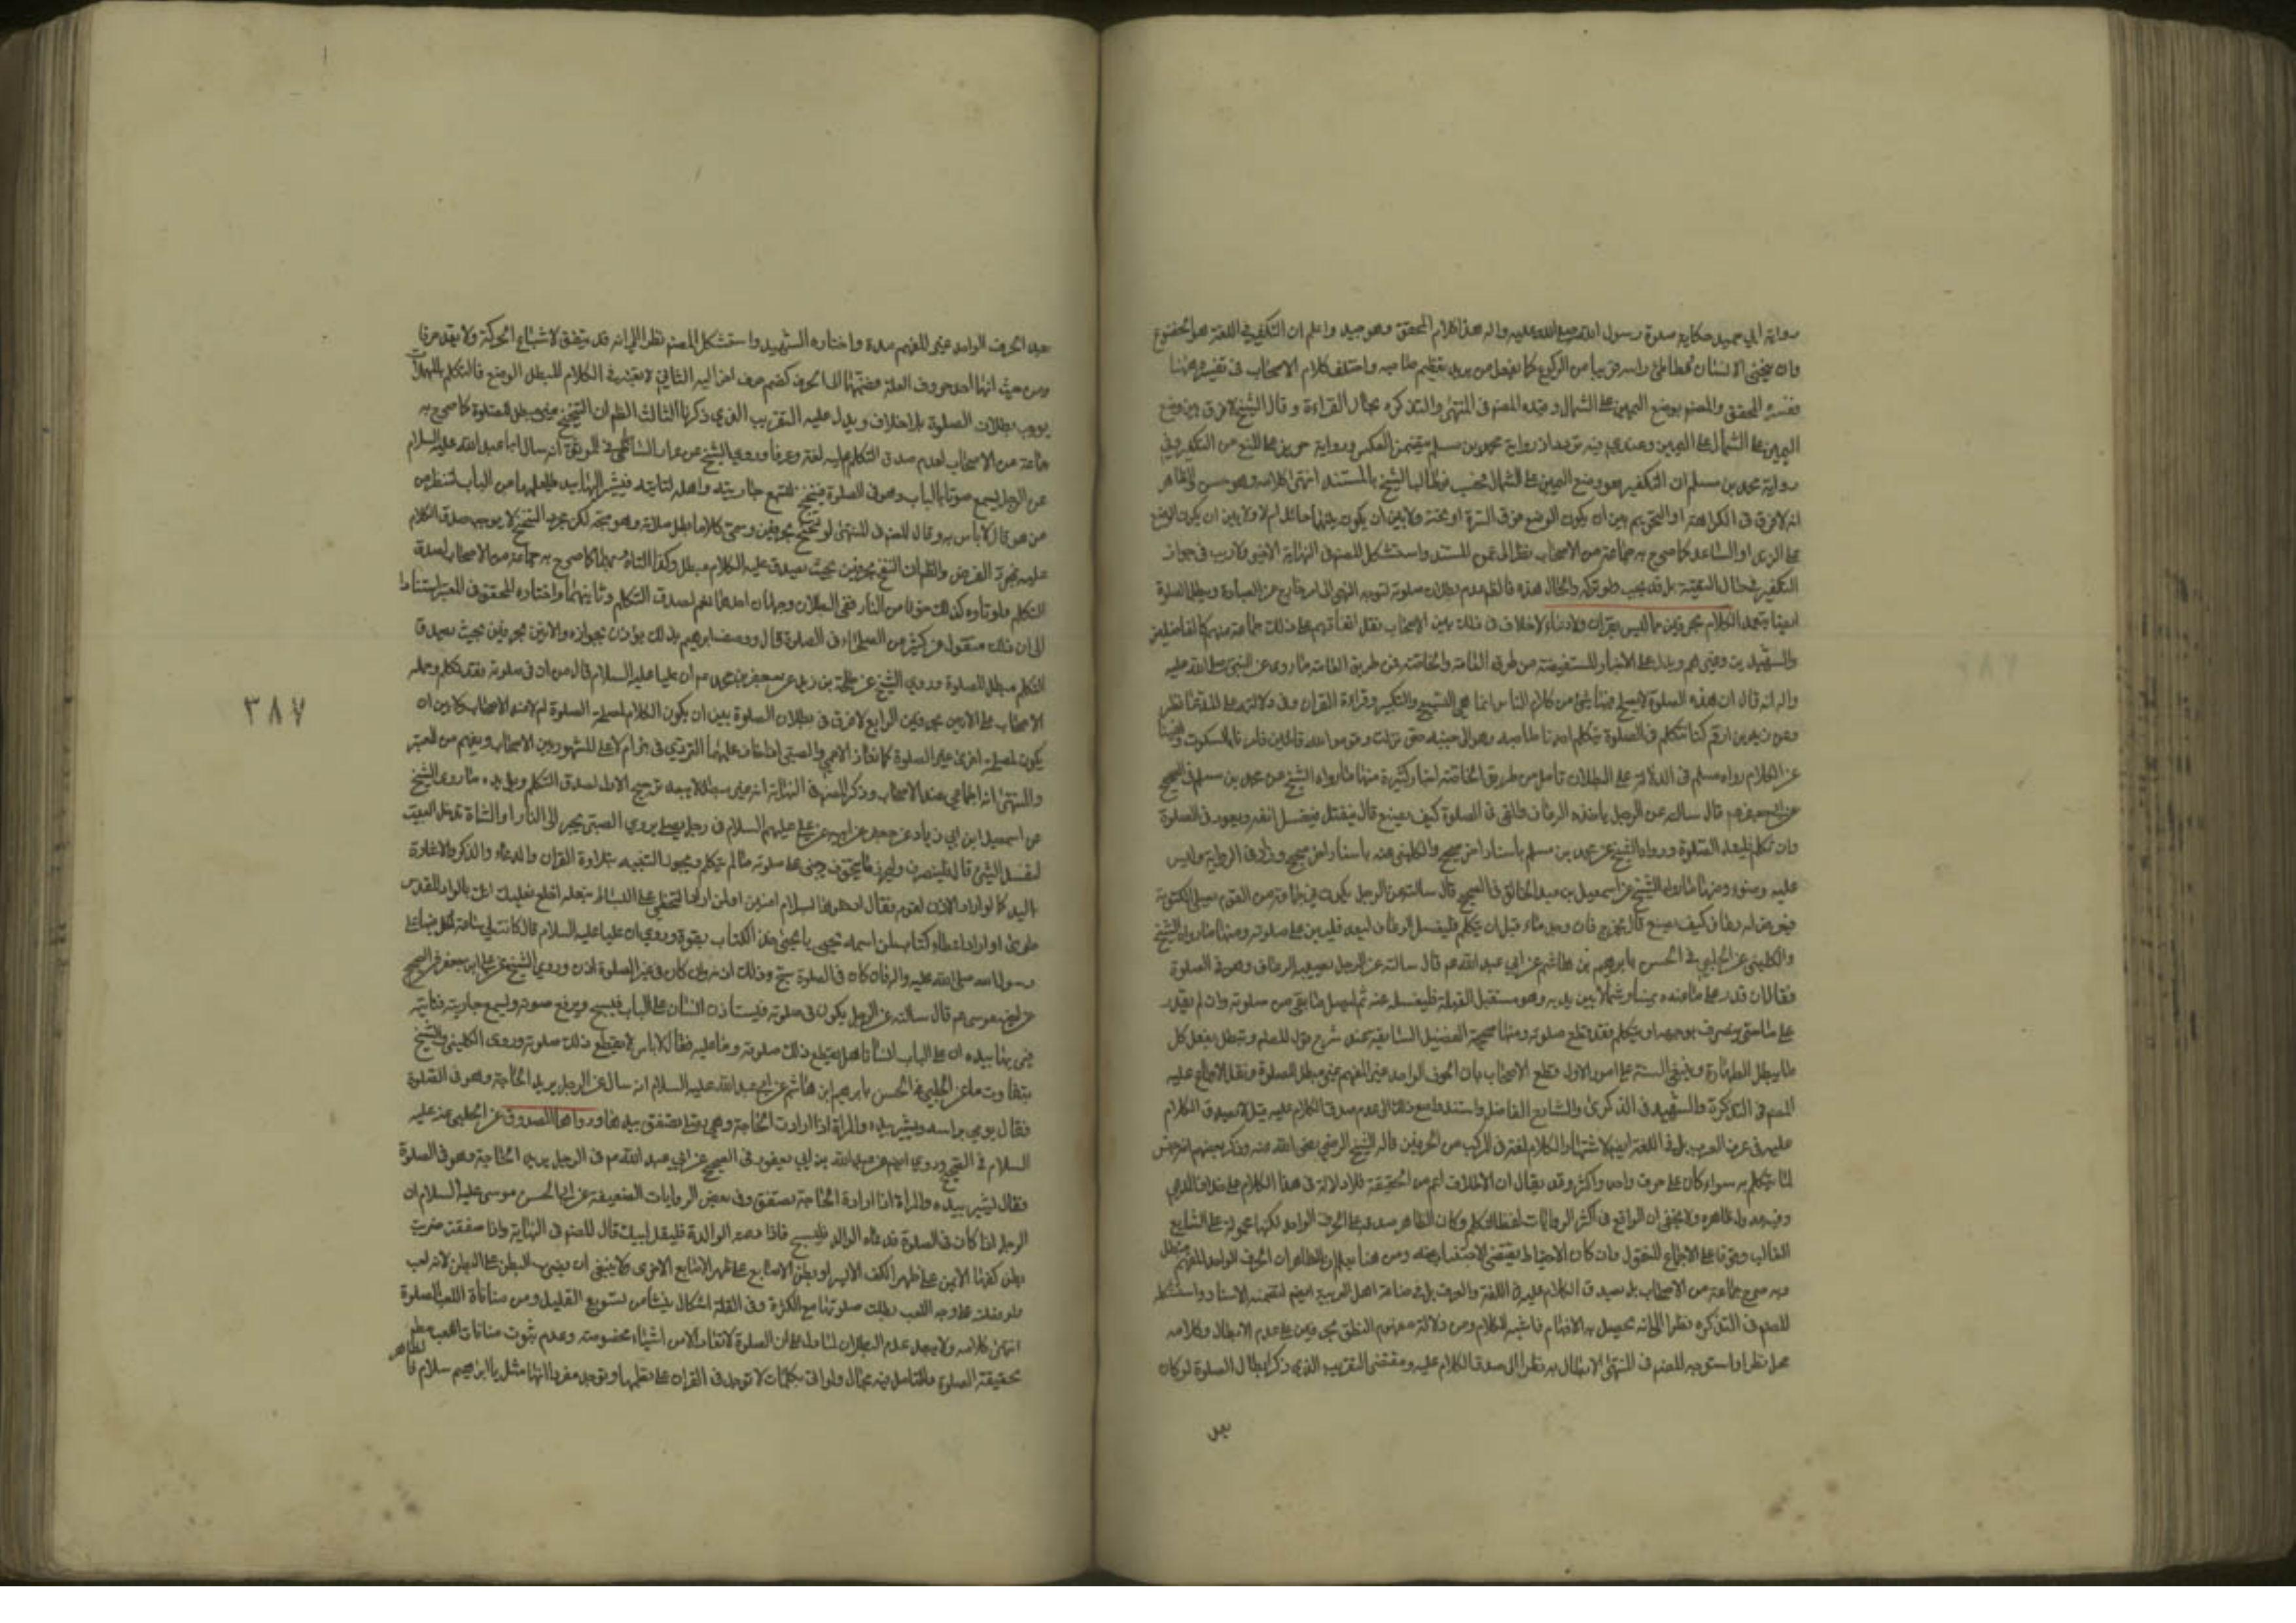 رواية ابي حميد حكاية صلوة رسول الله صلى الله عليه واله هذا كلام المحقق وهو جيد واعلم ان التكفير في اللغة هو الخضوع
وان ينحني الانسان ويطاطئ راسه قريبا من الركوع كما يفعل من يريد تعظيم صاحبه واختلف كلام الاصحاب في تفسيره ههنا
ففسره المحقق والمصنف بوضع اليمين على الشمال وقيده المصنف في المنتهى والتذكرة بحال القراءة وقال الشيخ لا فرق بين وضع
اليمين على الشمال على اليمين وعندي فيه تردد اذ رواية محمد بن مسلم يتضمن العكس ورواية حريز على المنع من التكفير وفي
رواية محمد بن مسلم ان التكفير هو وضع اليمين على الشمال فيطالب الشيخ بالمستند انتهى كلامه وهو حسن والظاهر
انه لا فرق في الكراهة او التحريم بين ان يكون الوضع فوق السرة او تحته ولا بين ان يكون بينهما حائل ام لا ولا بين ان يكون الوضع
على الزند او الساعد كما صرح به جماعة من الاصحاب نظرا الى عموم المستند واستشكل المصنف في النهاية الاخير ولا ريب في جواز
التكفير في حال التقية بل قد يجب ولو تركه والحال هذه فالظاهر عدم بطلان صلوته لتوجه النهي الى امر خارج عن العبادة ويبطل الصلوة
ايضا بتعمد الكلام بحرفين مما ليس بقران ولا دعاء لا خلاف في ذلك بين الاصحاب نقل اتفاقهم على ذلك جماعة منهم كالفاضلين
والشهيدين وغيرهم ويدل عليه الاخبار المستفيضة من طرق العامة والخاصة فمن طريق العامة ما روي عن النبي صلى الله عليه
واله انه قال ان هذه الصلوة لا يصلح فيها شئ من كلام الناس انما هي التسبيح والتكبير وقراءة القران وفي دلالته على المدعا نظر
وعن زيد بن ارقم كنا نتكلم في الصلوة يتكلم احدنا صاحبه وهو الى جنبه حتى نزلت وقوموا لله قانتين فامرنا بالسكوت ونهينا
عن الكلام رواه مسلم في الدلالة على البطلان تامل ومن طريق الخاصة اخبار كثيرة منها ما رواه الشيخ عن محمد بن مسلم في الصحيح
عن ابي جعفر عم قال سالته عن الرجل ياخذه الرعاف والقئ في الصلوة كيف يصنع قال ينفتل فيغسل انفه ويعود في الصلوة
وان تكلم فليعد الصلوة ورواه الشيخ عن محمد بن مسلم باسناد اخر صحيح والكليني عنه باسناد اخر صحيح وزاد في الرواية وليس
عليه وضوء ومنها ما رواه الشيخ عن اسمعيل بن عبد الخالق في الصحيح قال سالته عن الرجل يكون في جماعة من القوم يصلي المكتوبة
فيعرض له رعاف كيف يصنع قال يخرج فان وجد ماء قبل ان يتكلم فليغسل الرعاف ثم ليعد فليبن على صلوته ومنها ما رواه الشيخ
والكليني عن الحلبي في الحسن بابرهيم بن هاشم عن ابي عبد الله عم قال سالته عن الرجل يصيبه الرعاف وهو في الصلوة
فقال ان قدر على ماء عنده يمينا وشمالا بين يديه وهو مستقبل القبلة فليغسله عنه ثم ليصل ما بقي من صلوته وان لم يقدر
على ماء حتى ينصرف بوجهه او يتكلم فقد قطع صلوته ومنها صحيحة الفضيل السابقة عند شرح قول المصنف وتبطل بفعل كل
ما يبطل الطهارة وينبغي التنبيه على امور الاول قطع الاصحاب بان الحرف الواحد غير المفهم غير مبطل للصلوة ونقل الاجماع عليه
المصنف في التذكرة والشهيد في الذكرى والشارح الفاضل واستند مع ذلك الى عدم صدق الكلام عليه قيل لا يصدق الكلام
عليه في عرف العرب بل في اللغة ايضا لاشتهار الكلام لغة في المركب من الحرفين قاله الشيخ الرضي رضي الله عنه وذكر بعضهم انه جنس
لما يتكلم به سواء كان على حرف واحد واكثر وقد يقال ان الاطلاق اعم من الحقيقة فلا دلالة في هذا الكلام على خلاف المدعى
وفيه بعد ولا يخفى ان الواقع في اكثر الروايات لفظ التكلم وكان الظاهر صدقه على الحرف الواحد لكنها محمولة على الشايع
الغالب وقوفا على الاجماع المنقول وان كان الاحتياط يقتضي الاجتناب عنه ومن هنا يعلم ان الظاهر ان الحرف الواحد المفهم مبطل
وبه صرح جماعة من الاصحاب بل يصدق الكلام عليه في اللغة والعرف بل في صناعة اهل العربية ايضا لتضمنه الاسناد واستشكله
المصنف في التذكرة نظرا الى انه يحصل به الافهام فاشبه الكلام ومن دلالة مفهوم النطق بحرفين على عدم الابطال وكلامه
محل نظر واستوجه المصنف في المنتهى الابطال به نظرا الى صدق الكلام عليه ومقتضى التقريب الذي ذكر ابطال الصلوة لو كان
بعد
بعد الحرف الواحد غير المفهم مدة واختاره الشهيد واستشكل المصنف نظرا الى انه قد يتفق لاشباع الحركة ولا يعد حرفا
ومن حيث انها احد حروف العلة فضمها الى الحرف كضم حرف اخر اليه الثاني لا يعتبر في الكلام المبطل الوضع فالتكلم بالمهملات
يوجب بطلان الصلوة بلا خلاف ويدل عليه التقريب الذي ذكرنا الثالث الظاهر ان التنحنح غير مبطل للصلوة كما صرح به
جماعة من الاصحاب لعدم صدق التكلم عليه لغة وعرفا وروى الشيخ عن عمار الساباطي في الموثق انه سال ابا عبد الله عليه السلام
عن الرجل يسمع صوتا بالباب وهو في الصلوة فيتنحنح لتسمع جاريته واهله لتاتيه فيشير اليها بيده ليعلمها من الباب لتنظر من
هو فقال لا باس به وقال المصنف في المنتهى لو تنحنح بحرفين وسمي كلاما بطل صلاته وهو متجه لكن مجرد التنحنح لا يوجب صدق الكلام
عليه بمجرد الفرض والظاهر ان النفخ بحرفين بحيث يصدق عليه الكلام مبطل وكذا التاوه بهما كما صرح به جماعة من الاصحاب لصدق
التكلم ولو تاوه كذلك خوفا من النار ففي البطلان وجهان احدهما نعم لصدق التكلم وثانيهما واختاره المحقق في المعتبر استنادا
الى ان ذلك منقول عن كثير من الصلحاء في الصلوة قال ووصف ابرهيم بذلك يؤذن بجوازه والانين بحرفين بحيث يصدق
التكلم مبطل للصلوة وروى الشيخ عن طلحة بن زيد عن جعفر بن محمد عم ان عليا عليه السلام قال من ان في صلوته فقد تكلم وحمله
الاصحاب على الانين بحرفين الرابع لا فرق في بطلان الصلوة بين ان يكون الكلام لمصلحة الصلوة ام لا عند الاصحاب ولا بين ان
يكون لمصلحة اخرى غير الصلوة كانقاذ الاعمى والصبي اذا خاف عليهما التردي في ام لا على المشهور بين الاصحاب ويفهم من المعتبر
والمنتهى انه اجماعي عند الاصحاب وذكر المصنف في النهاية انه غير مبطل ولا يبعد ترجيح الاول لصدق التكلم ويؤيده ما روى الشيخ
عن اسمعيل ابن ابي زياد عن جعفر عن ابيه عن علي عليهم السلام في رجل يصلي يرى الصبي يحبو الى النار او الشاة تدخل البيت
لتفسد الشئ قال فلينصرف وليحرز ما يتخوف ويبني على صلوته ما لم يتكلم ويجوز التنبيه بتلاوة القران والدعاء والذكر والاشارة
باليد كما لو اراد الاذن لقوم فقال ادخلوها بسلام امنين او لمن اراد التخطي على البساط بنعله اخلع نعليك انك بالواد المقدس
طوى او اراد اعطاء كتاب لمن اسمه يحيى يا يحيى خذ الكتاب بقوة وروي ان عليا عليه السلام قال كانت لي ساعة ادخل فيها على
رسول الله صلى الله عليه واله فان كان في الصلوة سبح وذلك اذن وان كان في غير الصلوة اذن وروى الشيخ عن علي بن جعفر في الصحيح
عن اخيه موسى عم قال سالته عن الرجل يكون في صلوته فيستاذن انسان على الباب فيسبح ويرفع صوته ويسمع جاريته فتاتيه
فيريها بيده ان على الباب انسانا هل يقطع ذلك صلوته وما عليه فقال لا باس لا يقطع ذلك صلوته وروى الكليني والشيخ
بتفاوت ما عن الحلبي في الحسن بابرهيم ابن هاشم عن ابي عبد الله عليه السلام انه سال عن الرجل يريد الحاجة وهو في الصلوة
فقال يومي براسه ويشير بيده والمراة اذا ارادت الحاجة وهي تصلي تصفق بيدها ورواها الصدوق عن الحلبي عنه عليه
السلام في الصحيح وروى ايضا عن عبد الله بن ابي يعفور في الصحيح عن ابي عبد الله عم في الرجل يريد الحاجة وهو في الصلوة
فقال يشير بيده والمراة اذا ارادت الحاجة تصفق وفي بعض الروايات الضعيفة عن ابي الحسن موسى عليه السلام ان
الرجل اذا كان في الصلوة فدعاه الوالد فليسبح فاذا دعته الوالدة فليقل لبيك قال المصنف في النهاية واذا صفقت ضربت
بطن كفها الايمن على ظهر الكف الايسر او بطن الاصابع على ظهر الاصابع الاخرى ولا ينبغي ان يضرب البطن على البطن لانه لعب
ولو فعلته على وجه اللعب بطلت صلوتها مع الكثرة وفي القلة اشكال ينشا من تسويغ القليل ومن منافاة اللعب الصلوة
انتهى كلامه ولا يبعد عدم البطلان لما دل على ان الصلوة لا تفسد الا من اشياء مخصوصة وعدم ثبوت منافات اللعب مطلقا
لحقيقة الصلوة وللتامل فيه مجال ولو اتى بكلمات لا توجد في القران على نظمها وتوجد مفرداتها مثل يا ابرهيم سلام فالظاهر
٣٨٧